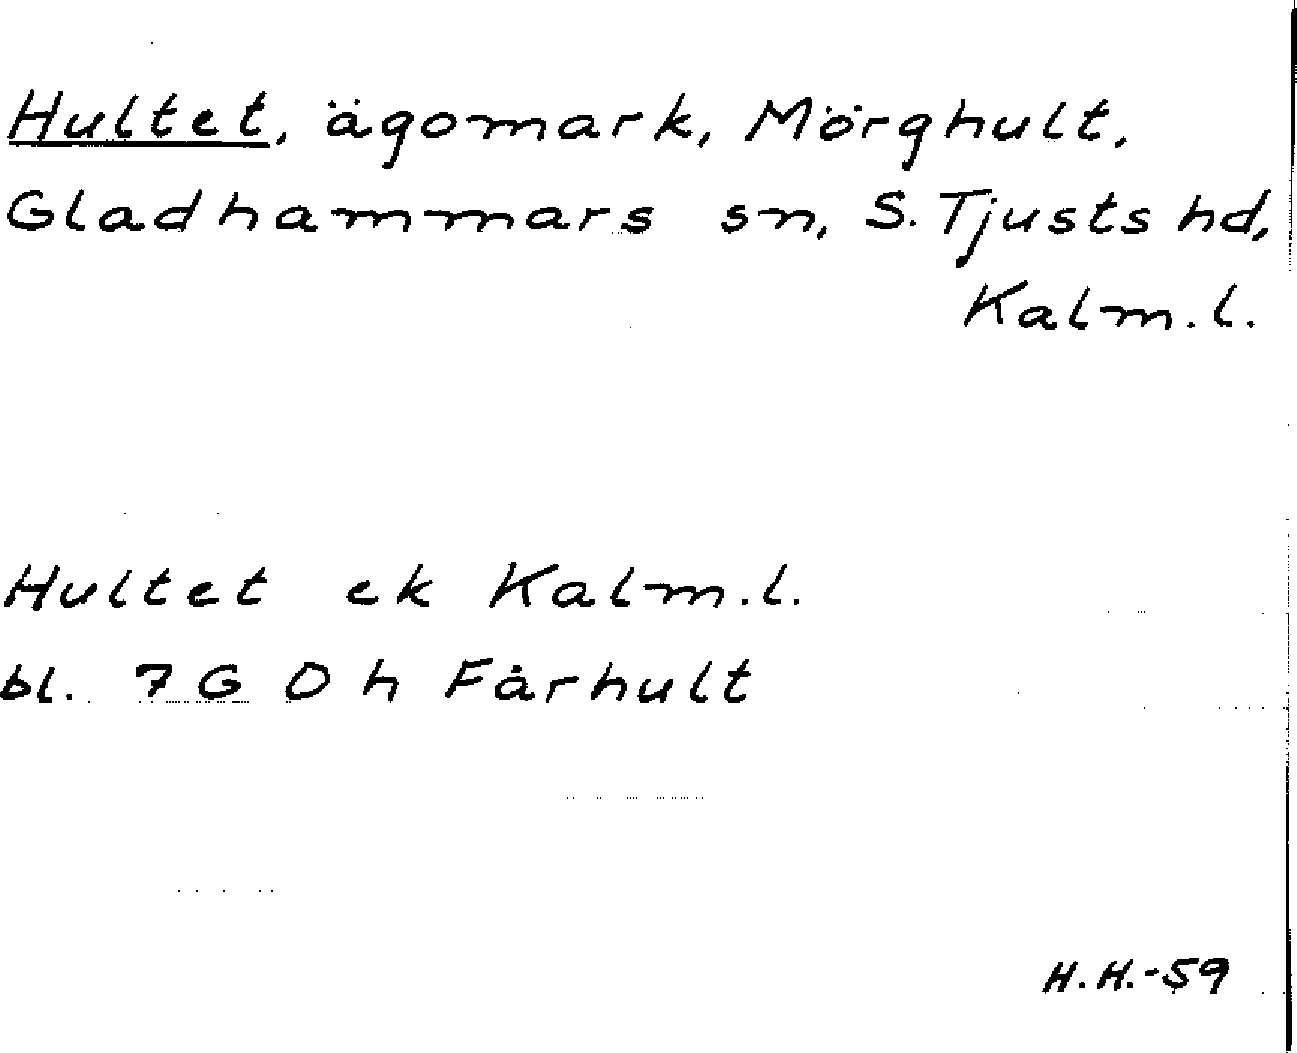 Hultet, ägomark, Mörghult,
Gladhammars sn, S. Tjusts hd,
Kalm. l.
Hultet ek Kalm. l.
bl. 7 G 0 h Fårhult
H. H. -59